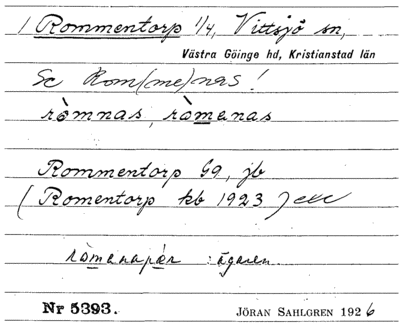 1 Rommentorp 1/4, Vittsjö sn,
Västra Göinge hd, Kristianstad län
Se Rom(me)nas!
ròmnas, ròmenas
Rommentorp G9, jb
(Romentorp kb 1923) etc
ròmenapær : ägaren.
Nr 5393. JÖRAN SAHLGREN 1926